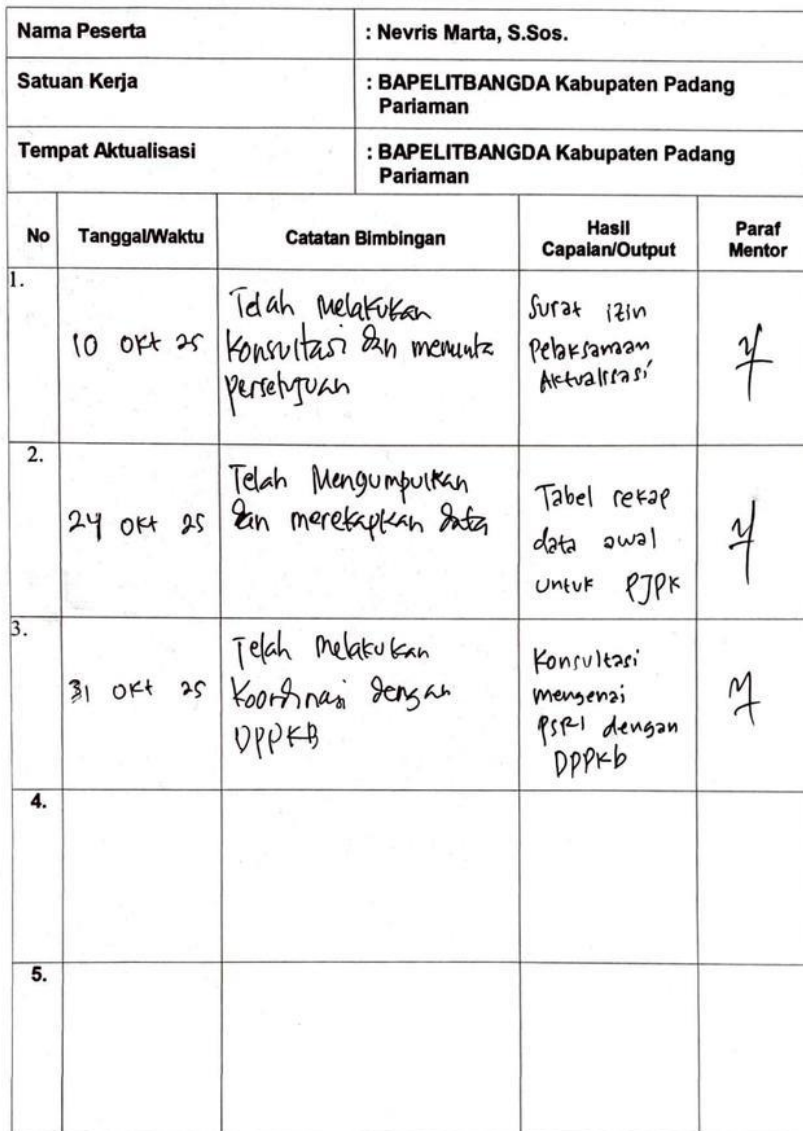 Nama Peserta : Nevris Marta, S.Sos.
Satuan Kerja : BAPELITBANGDA Kabupaten Padang
Pariaman
Tempat Aktualisasi : BAPELITBANGDA Kabupaten Padang
Pariaman
No Tanggal/Waktu Catatan Bimbingan Hasil Capaian/Output Paraf Mentor
1.
10 Okt 25
Telah melakukan
konsultasi dan meminta
persetujuan
Surat izin
Pelaksanaan
Aktualisasi
2.
24 Okt 25
Telah Mengumpulkan
dan merekapkan data
Tabel rekap
data awal
untuk PJPK
3.
31 Okt 25
Telah melakukan
koordinasi dengan
DPPKB
Konsultasi
mengenai
dengan
DPPKb
4.
5.